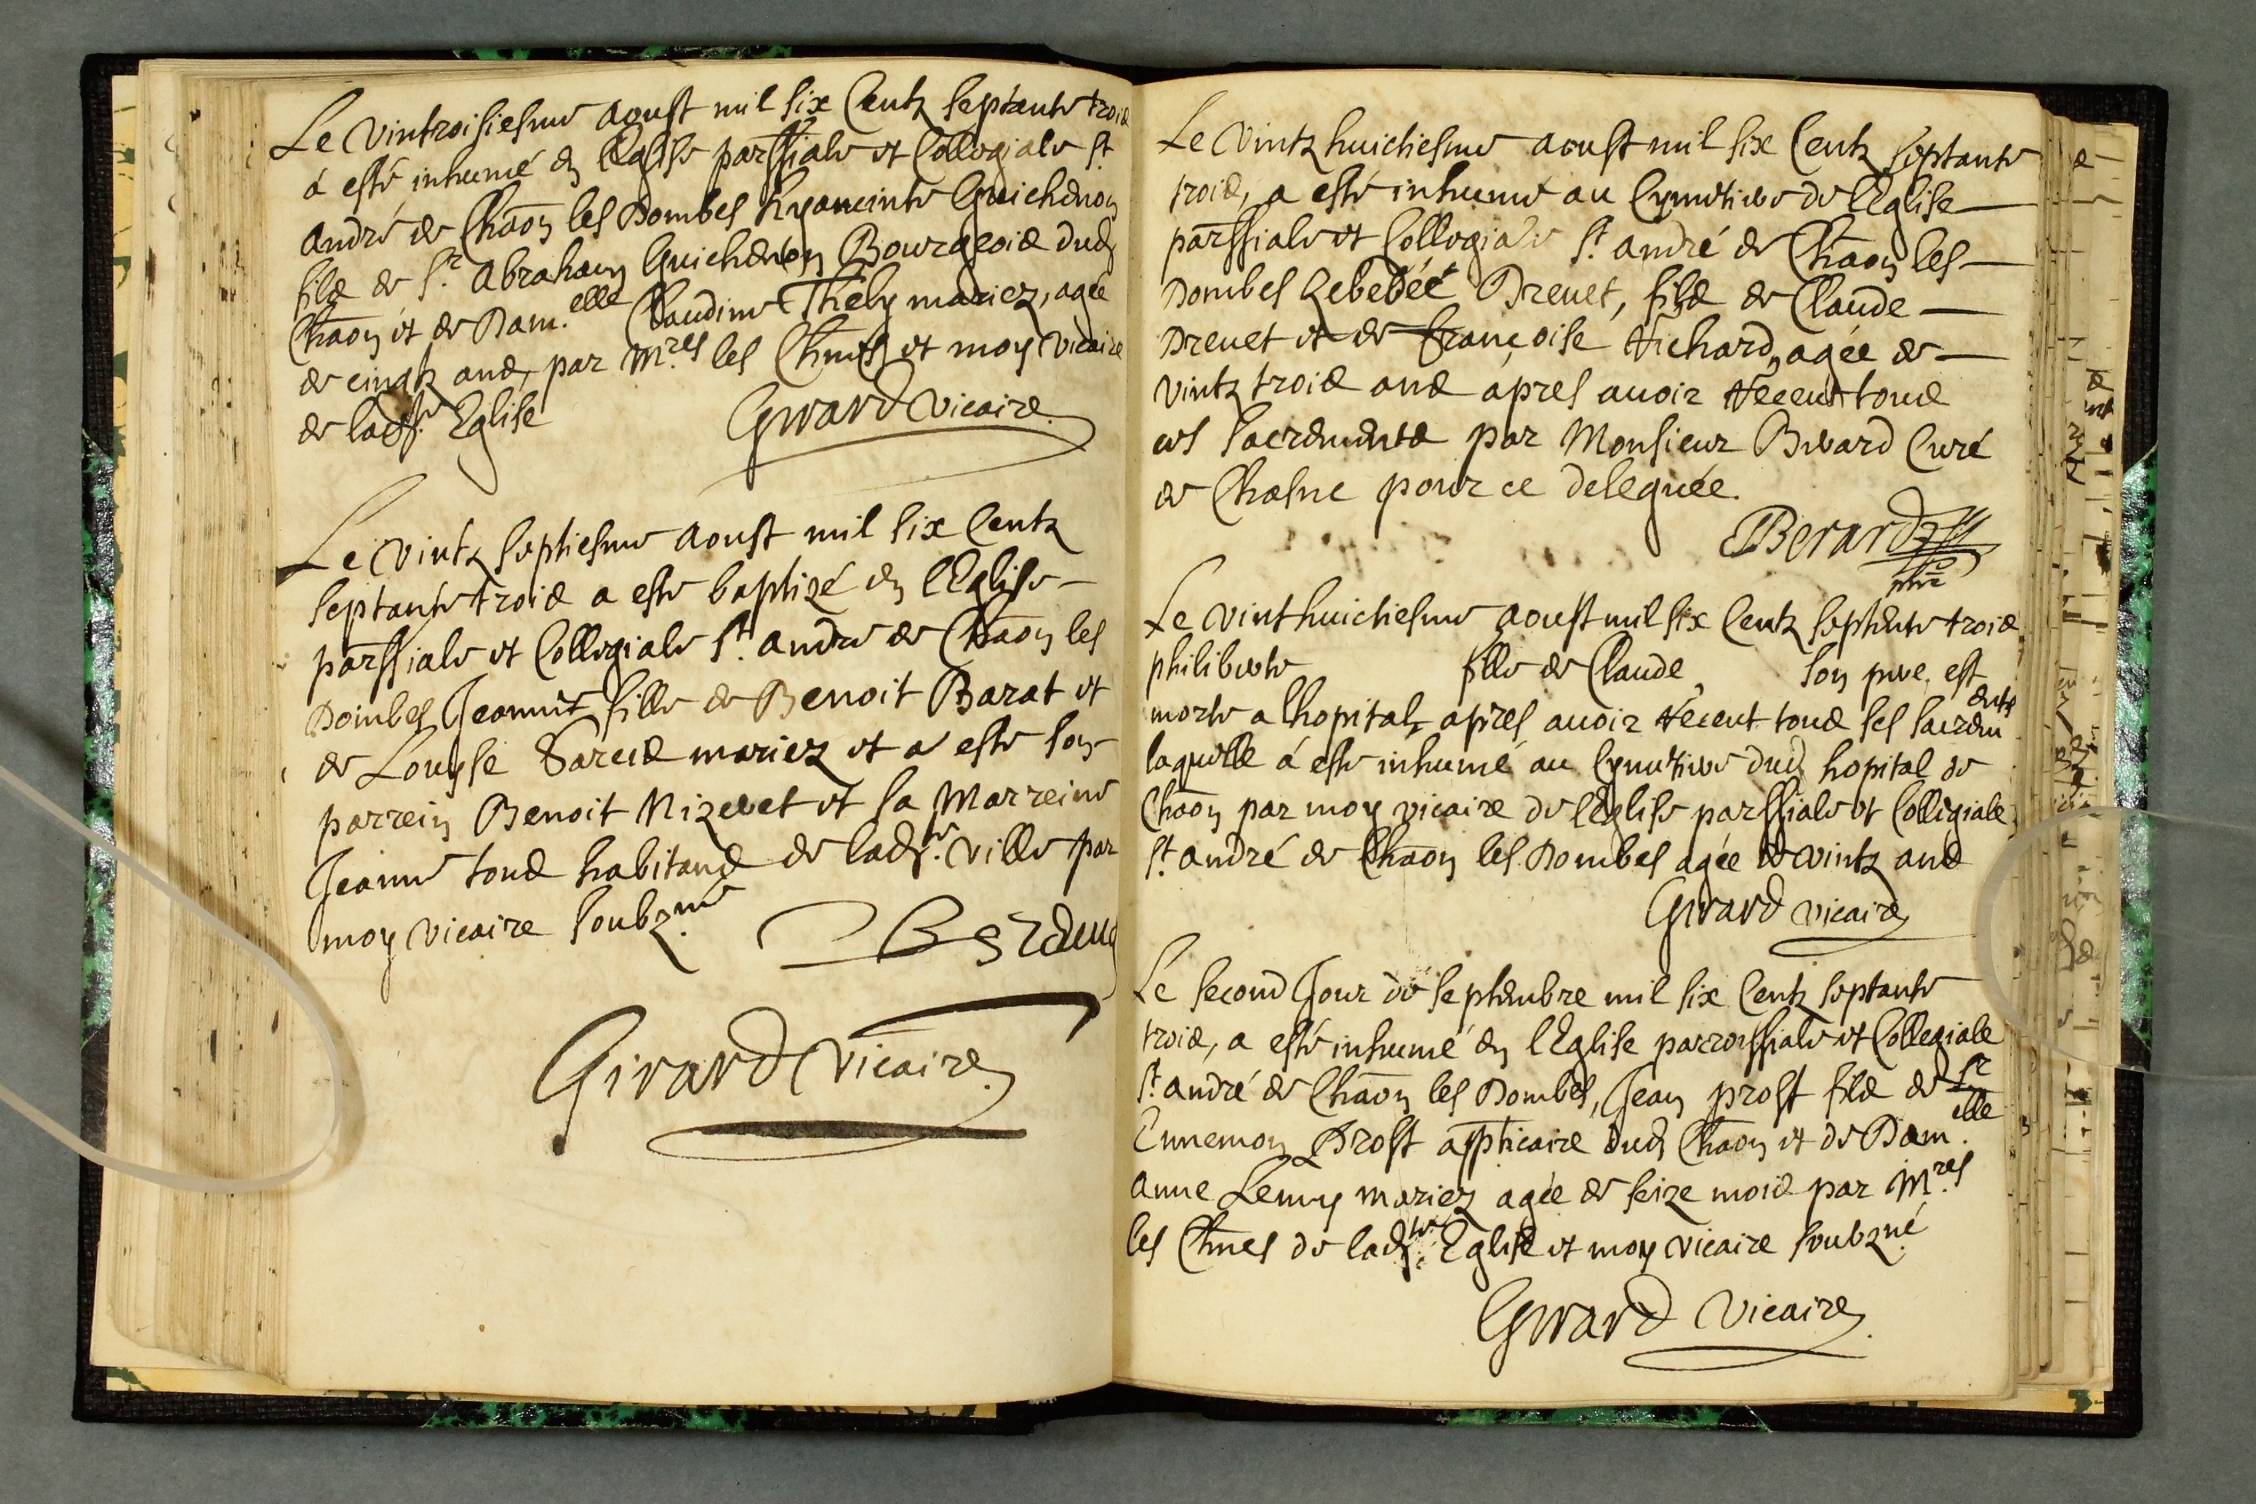 Le vintroisiesme aoust mil six Centz septante trois
á esté inhumé en l'Eglise parssiale et Collegiale St
André de Chāon les Dombes hyaucinte Guichenon
fils de Sr. Abraham Guichenon Bourgeois dud
Chāon et de Dam.elle Claudine Thely mariez, agée
de cingtz ans, par M.res les Chnes et moy vicaire
de lad.te Eglise
Girard vicaire
Le vintz septiesme aoust mil six Centz
septante trois a este baptizé en l'Eglise
parssiale et Collegiale St. andré de Chāon les
Dombes Jeanne fille de Benoit Barat et
de Louyse mariez et a este son
parrein Benoit Nizeret et sa Marreine
Jeanne tous habitans de lad.te ville par
moy vicaire soubz.né
Girard vicaire
Le vintz huictiesme aoust mil six Centz septante
trois, a esté inhumé au Cymetiere de l'Eglise
parssiale et Collegiale St. andré de Chāon les
Dombes Zebedée Dreuet, fils de Claude
Dreuet et de Françoise Richard, agée de
vintz trois ans ápres auoir Receu tous
ces Sacrements par Monsieur Berard Curé
de Chasne pour ce deleguée.
Berard
ptre
Le vinthuictiesme aoust mil six Centz septente trois
philiberte fille de Claude, son pere, est
morte a lhopital, apres auoir Receut tous ses sacrements
laquelle á este inhumé au Cymetiere dud hopital de
Chāon par moy vicaire de l'Eglise parssiale et Collegiale
St. andré de Chāon les Dombes agée de vintz ans
Girard vicaire
Le second Jour de septembre mil six Centz septante
trois, a esté inhumé en l'Eglise parroissiale et Collegiale
St. andré de Chāon les Dombes, Jean prost fils de Sr
Ennemon Prost appticaire dud Chāon et de Dam.elle
anne Lemy mariez agée de seize mois par M.res
les Chnes de lad.te Eglise et moy vicaire soubzné
Girard vicaire